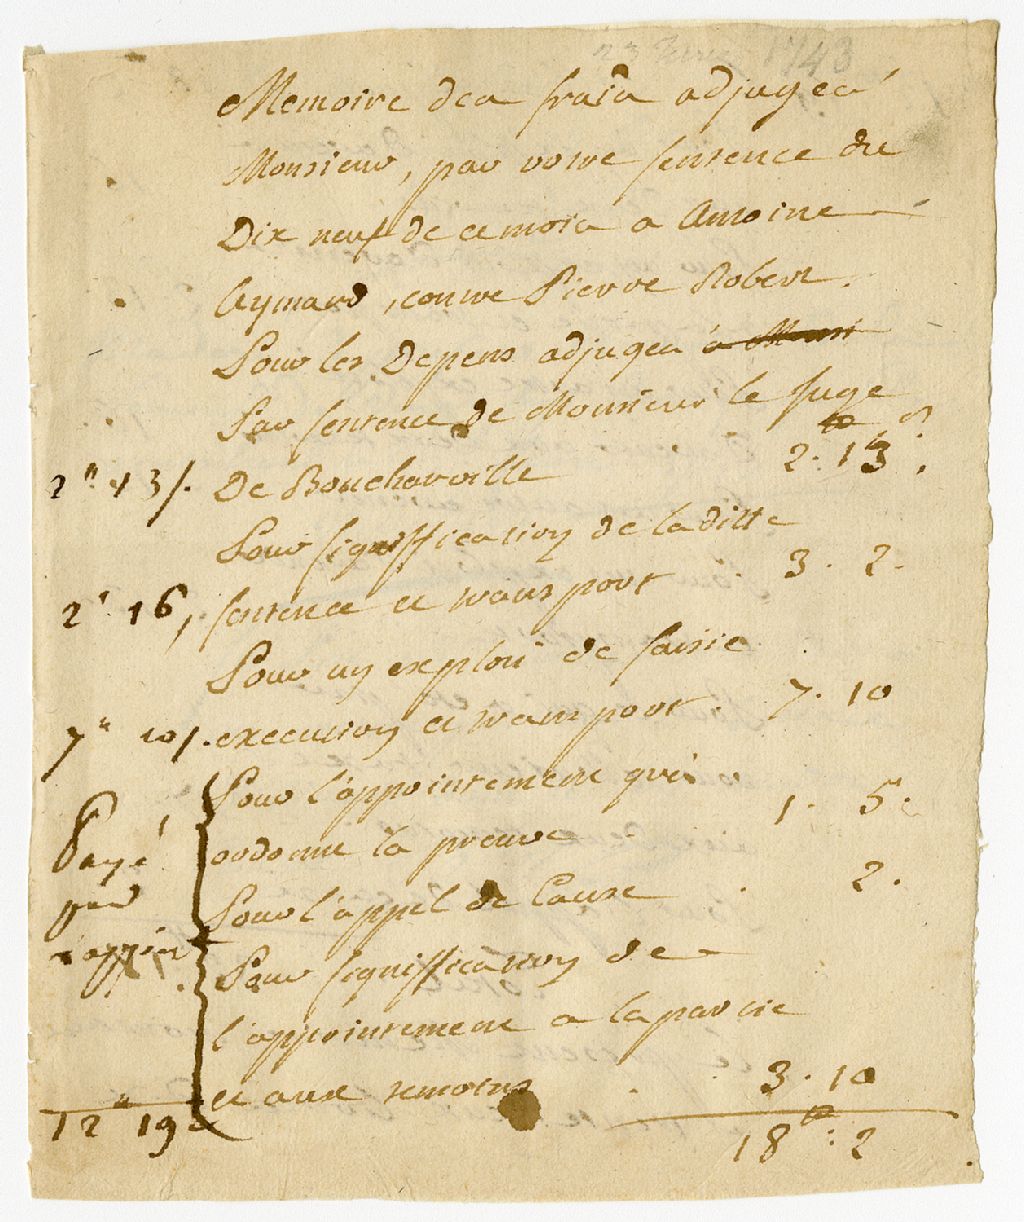 23 1743
Memoire des frais adjugés
Monsieur, par votre sentence du
Dix neuf de ce mois a Antoine
Aymard, contre Pierre Robert.
Pour les Depens adjugés a Mons
Par sentence de Monsieur le Juge
2" 13 /. De Boucharville 2. 13
Pour signiffication de la ditte
2" 16, sentence et transport 3. 2.
Pour un exploit de saisie
7" 10 /. execution et transport. 7. 10
Pour l'appointement qui
ordonne la preuve 1. 5.
Payé
par
Pour l'appel de Cause 2.
Pour signiffication de
l'appointement a la partie
et aux temoins 3. 10
12" 19 18tt: 2